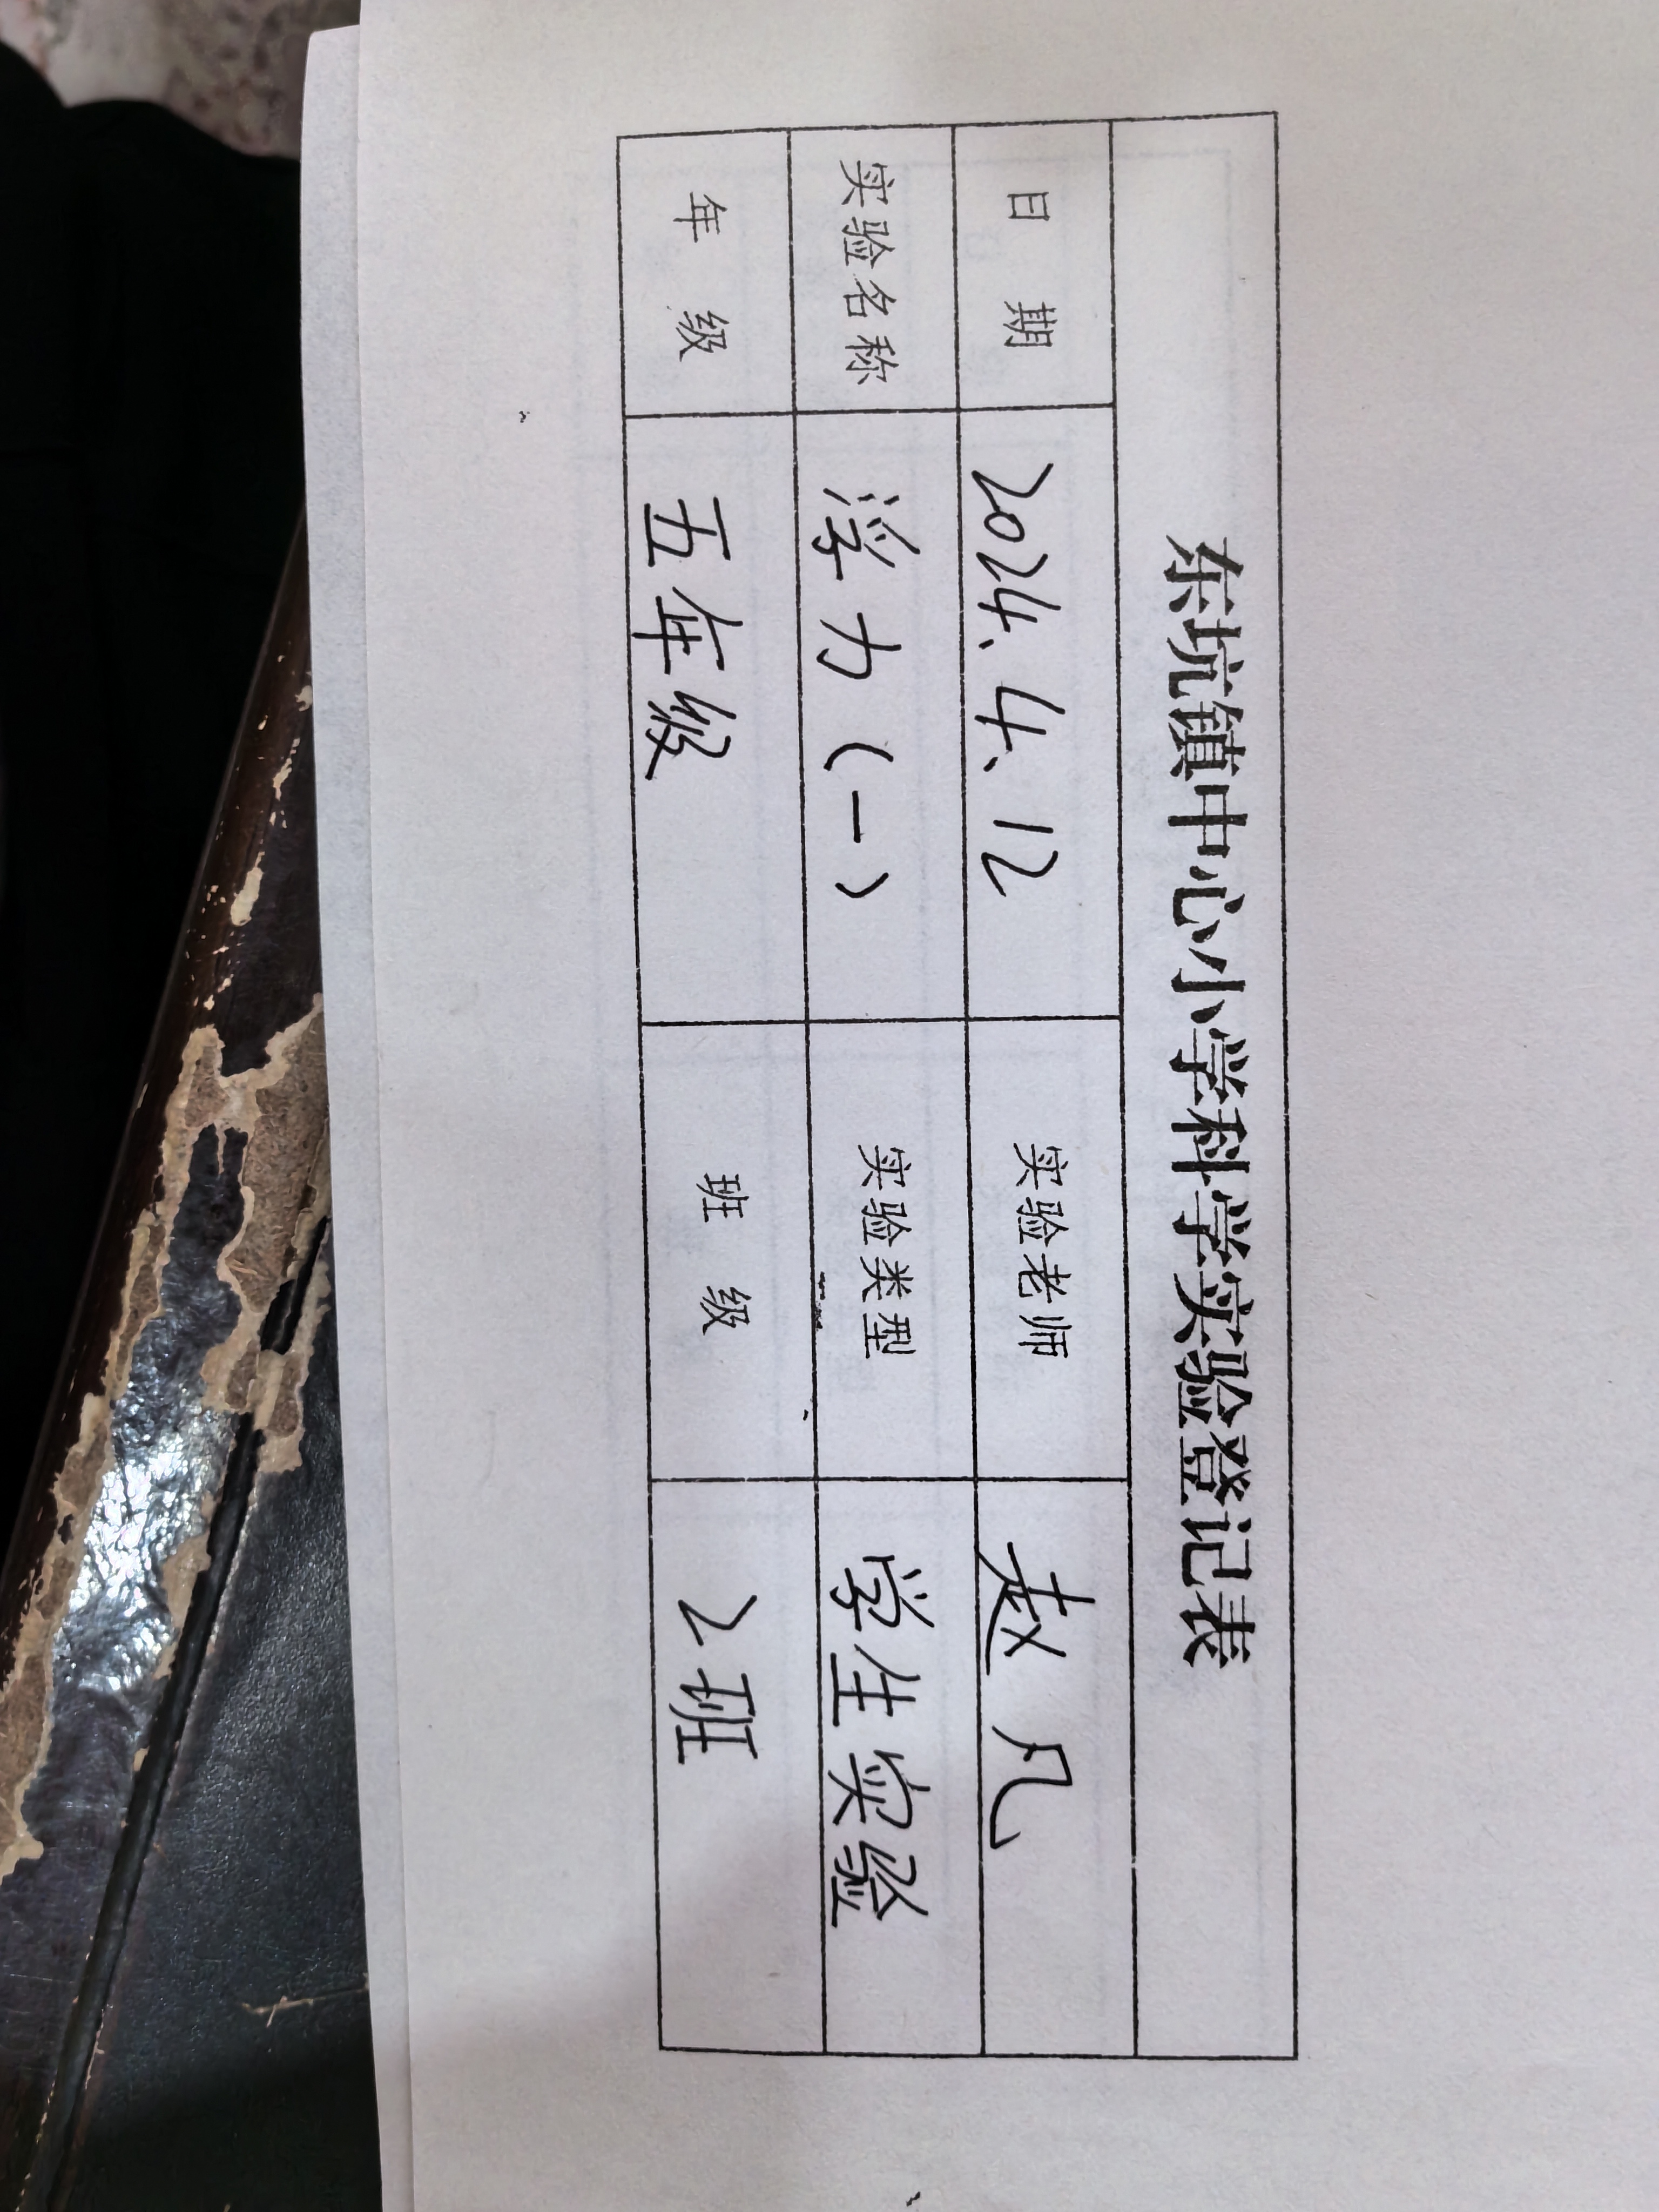 东坑镇中心小学科学实验登记表
日 期 2024.4.12 实验老师 赵凡
实验名称 浮力（一） 实验类型 学生实验
年 级 五年级 班 级 2班